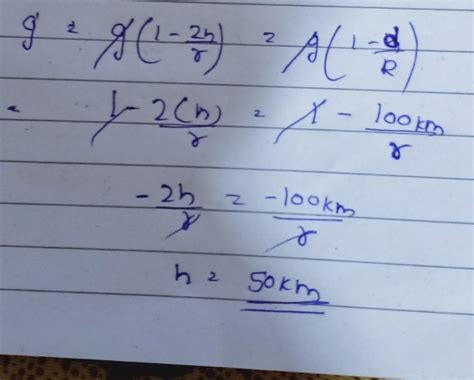 g' = g(1 - 2h/r) = g(1 - d/R)
= 1 - 2(h)/r = 1 - 100km/r
-2h/r = -100km/r
h = 50km